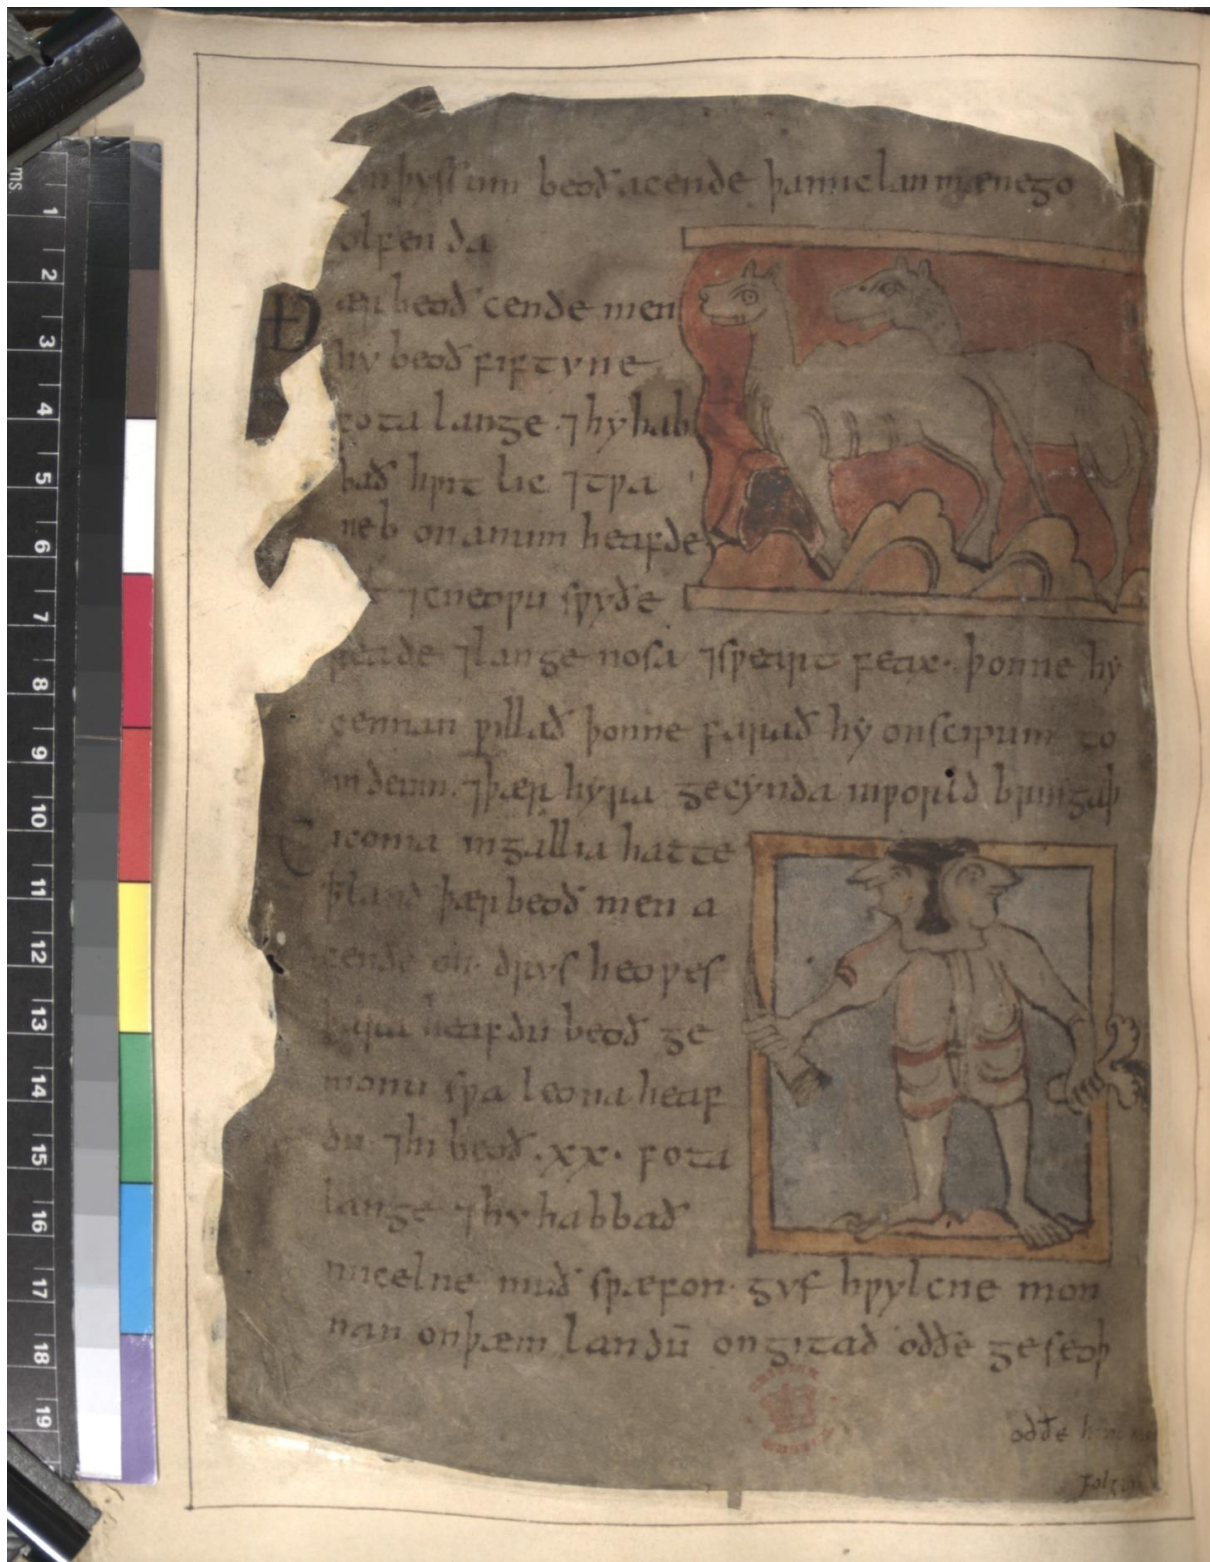 þyssum beoð acende þa miclan mænego
olfenda
Ðær beoð cende men
hy beoð fiftyne
fota lange ⁊ hy hab
bað hƿit lic ⁊ tƿa
neb on anum heafde
⁊ cneoƿu sƿyðe
reade ⁊ lange nosa ⁊ sƿeart feax. þonne hy
cennan ƿillað þonne farað hy on scipum to
indeum. ⁊ þær hyra gecynda in ƿorld bringaþ
Ciconia in gallia hatte
þ land þær beoð men a
cende on drys heoƿes
þara heafdu beoð ge
monu sƿa leona heaf
du ⁊ hi beoð .xx. fota
lange ⁊ hy habbað
micelne muð sƿa fon. gyf hƿylcne mon
nan on þæm landū ongitað oððe geseoþ
oððe
folgien
1
2
3
4
5
6
7
8
9
10
11
12
13
14
15
16
17
18
19